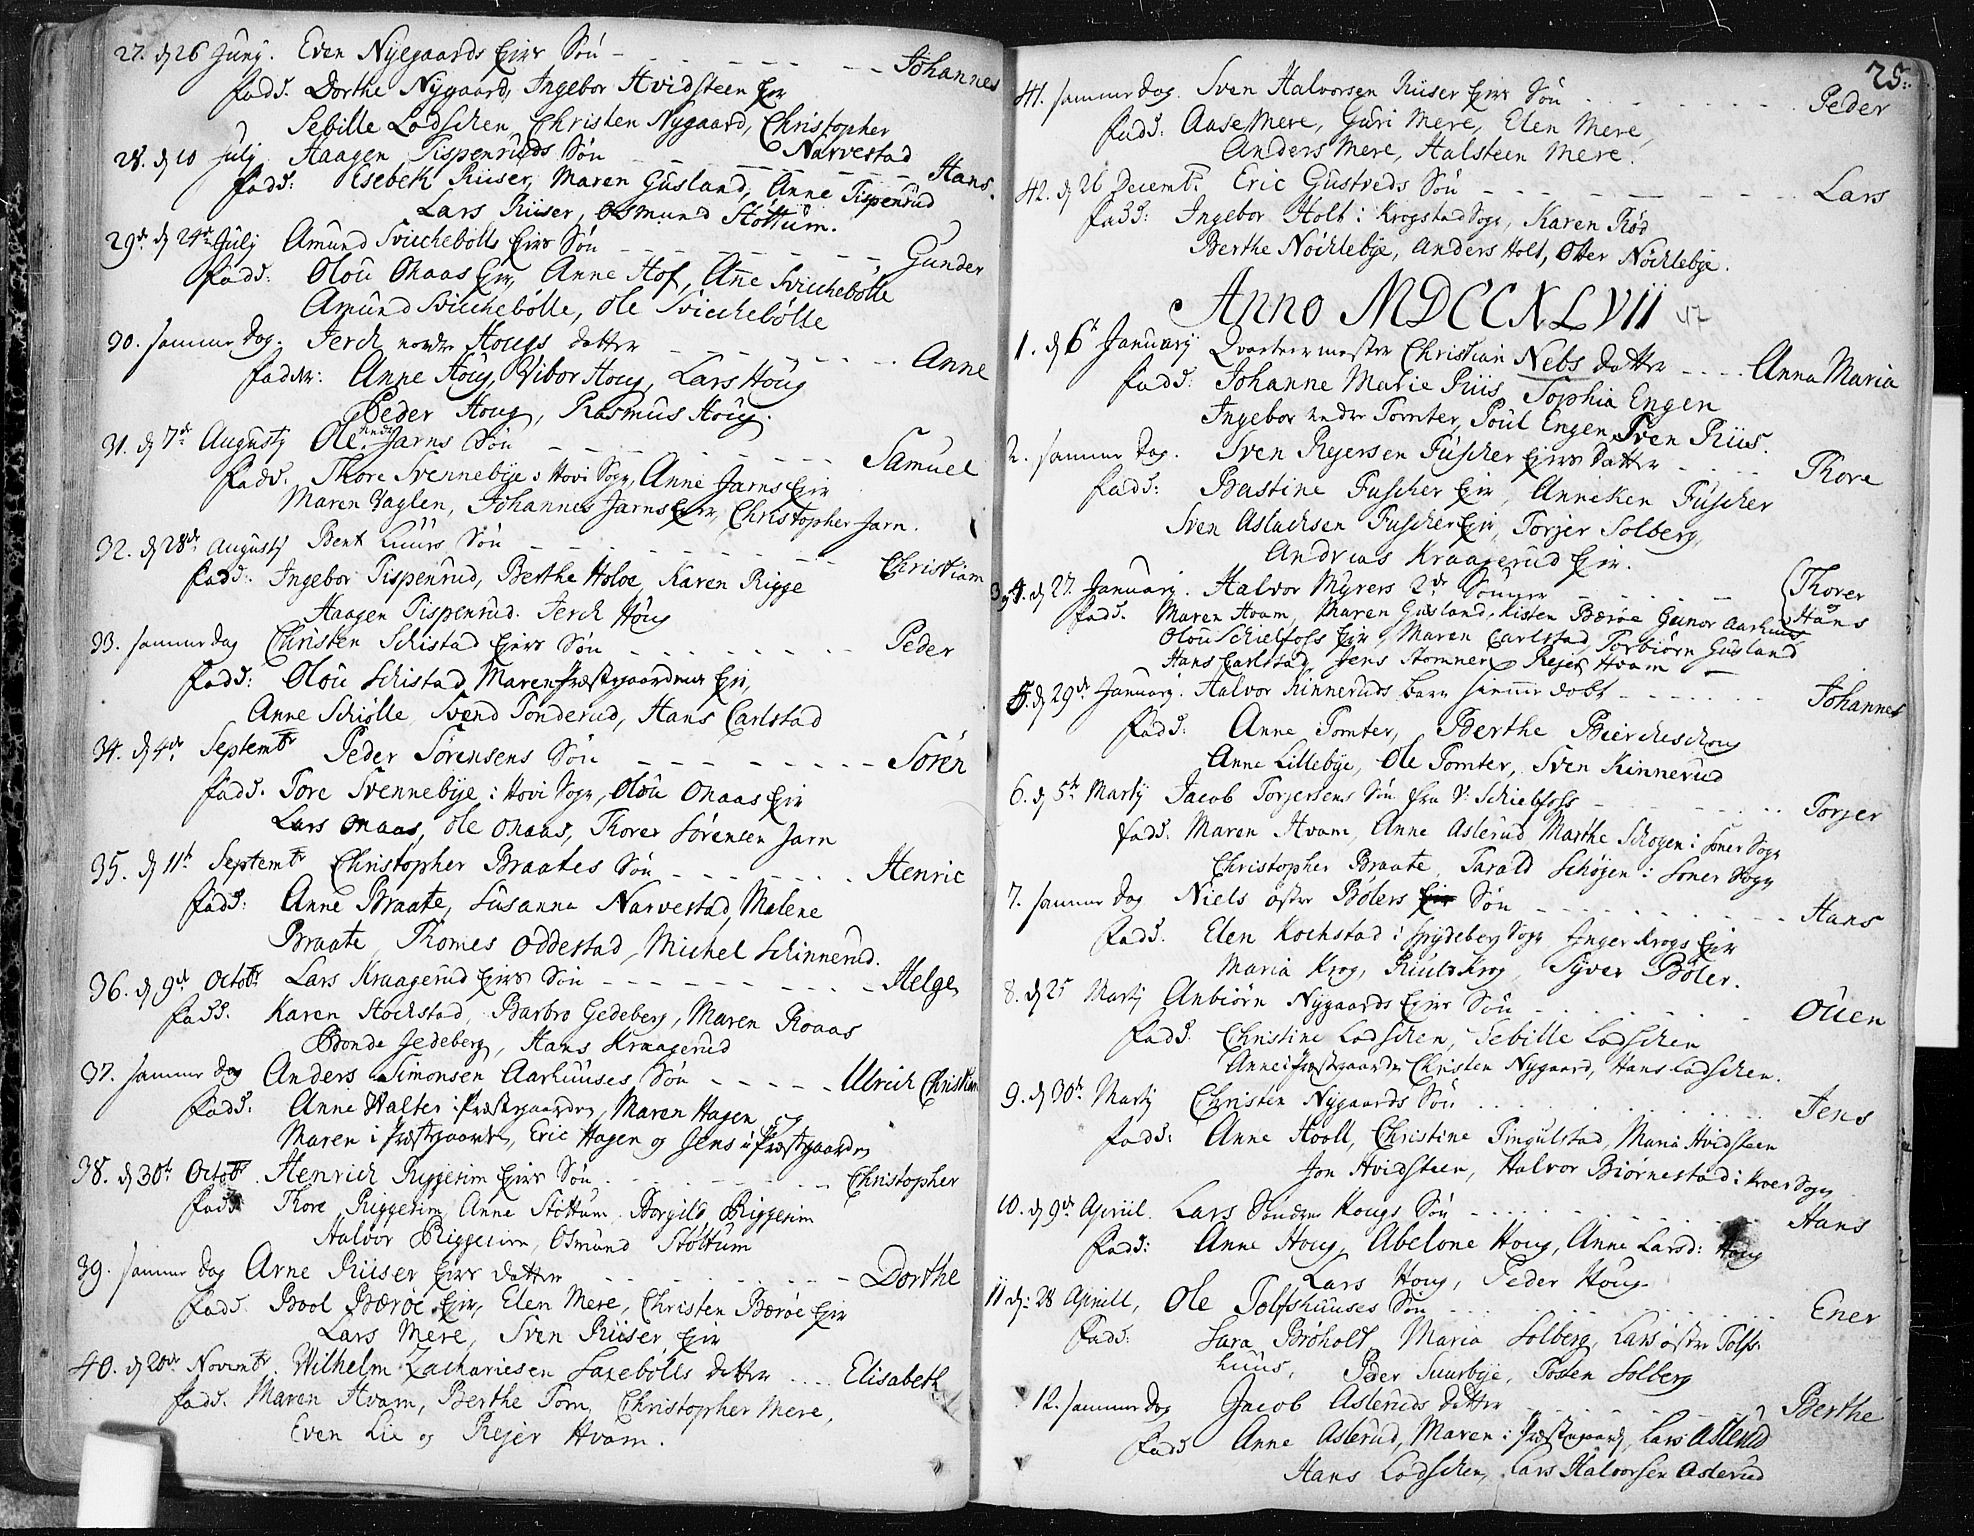 27. d 26 Junj. Even Nyegaards Eiers Sön - - - - - - Johannes
fadd. Dorthe Nygaard, Ingebor Hvidsteen Eier
Sebille Ladschen, Christen Nygaard, Christopher
Narvestad
28. d 10 Julj Haagen Tispenruds Sön - - - - - - Hans.
fadd: Lisebeth Riiser, Maren Gusland, Anne Tispenrud
Lars Riiser, Osmund Stöttum.
29. d 24de Julj Amund Svichebölls Eiers Sön - - - - - - Gunder
fadd: Olou Onaas Eier, Anne Hof, Anne Svichebölle
Amund Svichebölle, Ole Svichebölle
30. sammer dag. Jerch nordre Hougs datter - - - - - - Anne
fadder: Anne Houg, Vibor Houg, Lars Houg
Peder Houg, Rasmus Houg.
31. d 7de Augustj Ole Jarns Sön - - - - - - Samuel
fadd. Thore Svennebye i Hovi Sogn, Anne Jarns Eier
Maren Vaglen, Johannes Jarns Eier, Christopher Jarn.
32. d 28de Augustj Bent Luurs Sön - - - - - - Christian
fadd: Ingebor Tispenrud, Berthe Holoe, Karen Rigge
Haagen Tispenrud. Jerch Houg
33. sammer dag Christen Schistad Eiers Sön - - - - - - Peder
fadd: Olou Schistad, Maren Præstegaarden Eier,
Anne Schiölle, Svend Tonderud, Hans Carlstad
34. d 4de Septembr Peder Sörensens Sön - - - - - - Sören
fadd. Tore Svennebye i Hovi Sogn, Olou Onaas Eier
Lars Onaas, Ole Onaas, Thorer Sörensen Jarn
35. d 11te Septembr Christopher Braates Sön - - - - - - Henric
fadd: Anne Braate, Susanna Narvestad, Malene
Braate, Thomes Oddestad, Michel Schinnerud.
36. d 9de Octobr Lars Kraagerud Eiers Sön - - - - - - Helge
fadd. Karen Hochstad, Barbro Gedeberg, Maren Roaas
Bonde Gedeberg, Hans Kraagerud
37. sammer dag Anders Simonsen Aarhuuses Sön - - - - - Ulrich Christian
fadd. Anne Walter i Præstegaarden, Maren Hagen og
Maren i Præstegaarden, Eric Hagen og Jens i Præstgaarden
38. d 30te Octobr. Henrich Riggesim Eiers Sön - - - - - - Christopher
fadd Thore Riggesim, Anne Stöttum Borgild Riggesim
Halvor Riggesim, Osmund Stöttum
39. sammer dag Arne Riiser Eiers datter - - - - - - Dorthe
fadd. Bool Bæröe Eier, Elen Mere, Christen Bæröe Eier
Lars Mere, Sven Riiser Eier
40. d 20de Novembr. Wilhelm Zachariesen Saxebölls datter .... Elisabeth
fadd. Maren Hvam, Berthe Torn, Christopher Mere,
Even Lie og Rejer Hvam.
25.
41. sammer dag. Sven Halvorsen Riiser Eiers Sön - - - - - - Peder
fadd: Aase Mere, Guri Mere, Elen Mere,
Anders Mere, Halsteen Mere.
42. d 26 Decembr Eric Gustveds Sön - - - - - - Lars
fadd: Ingebor Holt i Krogstad Sogn, Karen Röd
Berthe Nöchlebye, Anders Holt, Otter Nöchlebye.
Anno MDCCXLVII 47
1. d 6te Januarj Qvarteermester Christian Nebs datter - - - - Anna Maria
fadd: Johanne Marie Riis, Sophia Engen
Ingebor nedre Tomter, Poul Engen, Sven Riis.
2. sammer dag. Sven Rejersen Fuscher Eiers datter - - - - Thore
fadd: Bastine Fuscher Eier, Anneken Fuscher
Sven Aslachsen Fuscher Eier, Torjer Solberg,
Andreas Kraagerud Eier.
3 og 4. d 27. Januarj. Halvor Myrers 2de Sönner - - - - - - Thorer
Hans
fadd. Maren Hvam, Maren Gusland, Kisten Bæröe Gunor Aarhuus
Olou Schielfoss Eier, Maren Carlstad, Torbiörn Gusland
Hans Carlstad, Jens Stomner, Rejer Hvam
5. d 29de Januarj. Halvor Kinneruds barn hiemme döbt - - - - - - Johannes
fadd: Anne Tomter, Berthe Bierchechoug
Anne Lillebye, Ole Tomter, Sven Kinnerud
6. d 5te Martj Jacob Torjersens Sön fra V. Schielfoss - - - - - - Torjer
fadd. Maren Hvam, Anne Aslerud Marthe Schogen i Soner Sogn
Christopher Braate, Tarald Schögen i Soner Sogn
7. sammer dag Niels östre Bölers Eier Sön - - - - - - Hans
fadd. Elen Kochstad i Spydeberg Sogn Inger Krogs Eier
Maria Krog, Ruuls Krog, Syver Böler.
8. d 25 Martj Anbiörn Nygaards Eiers Sön - - - - - - Ouen
fadd. Christine Ladschen, Sebille Ladschen
Anne i Præstgaarden Christen Nygaard, Hans Ladschen.
9. d 30te Martj Christen Nygaards Sön - - - - - - Jens
fadd: Anne Hooll, Christine Tingulstad, Maria Hvidsteen
Jon Hvidsteen, Halvor Biörnestad i Kroer Sogn
10. d 9de Apriil. Lars Söndre Hougs Sön - - - - - - Hans
fadd: Anne Houg, Abelone Houg, Anne Larsd: Houg
Lars Houg, Peder Houg
11 d: 23 Aprill, Ole Tolfshuuses Sön - - - - - - Ener
fadd. Sara Bröholt, Maria Solberg, Lars östre Tolfs-
huus, Peder Suurbye, Tosten Solberg
12. sammer dag Jacob Asleruds datter - - - - - - Berthe
fadd Anne Aslerud, Maren i Præstegaard, Lars Aslerud
Hans Ladschen, Lars Halvorsen Aslerud